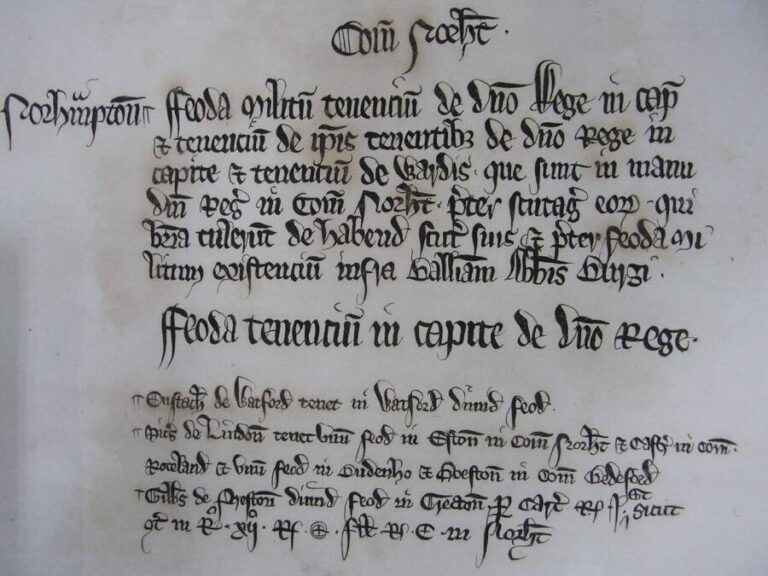 Com̄ Norht̄.
Norhāptoñ Feoda Militū tenenciū de dño Rege in cap̄
& tenenciū de ip̄is tenentibȝ de dño Rege in
capite & tenenciū de Wardis. que sunt in manu
dñi Reg̃ in Com̄ Norht̄. p̄ter scutag̃ eoꝝ. qui
br̄ia tuler̄nt de habend̄ scut̃ suis & p̄ter feoda Mi
litum existenciū infra Balliam Abb̄is Burgi.
Feoda tenenciū in capite de dño Rege.
Eustach̃ de Watford̄ tenet in Watford̄ dimid̄ feod̄.
de Lindoñ tenet unū feod̄ in Estoñ in Com̄ Norht̄ & in com̄.
Roteland & unū feod̄ in Budenho & in Com̄ Bedeford̄
Gilb̄s de Prestoñ dimid̄ feod̄ in Cart̃ sicut
in Norht̄